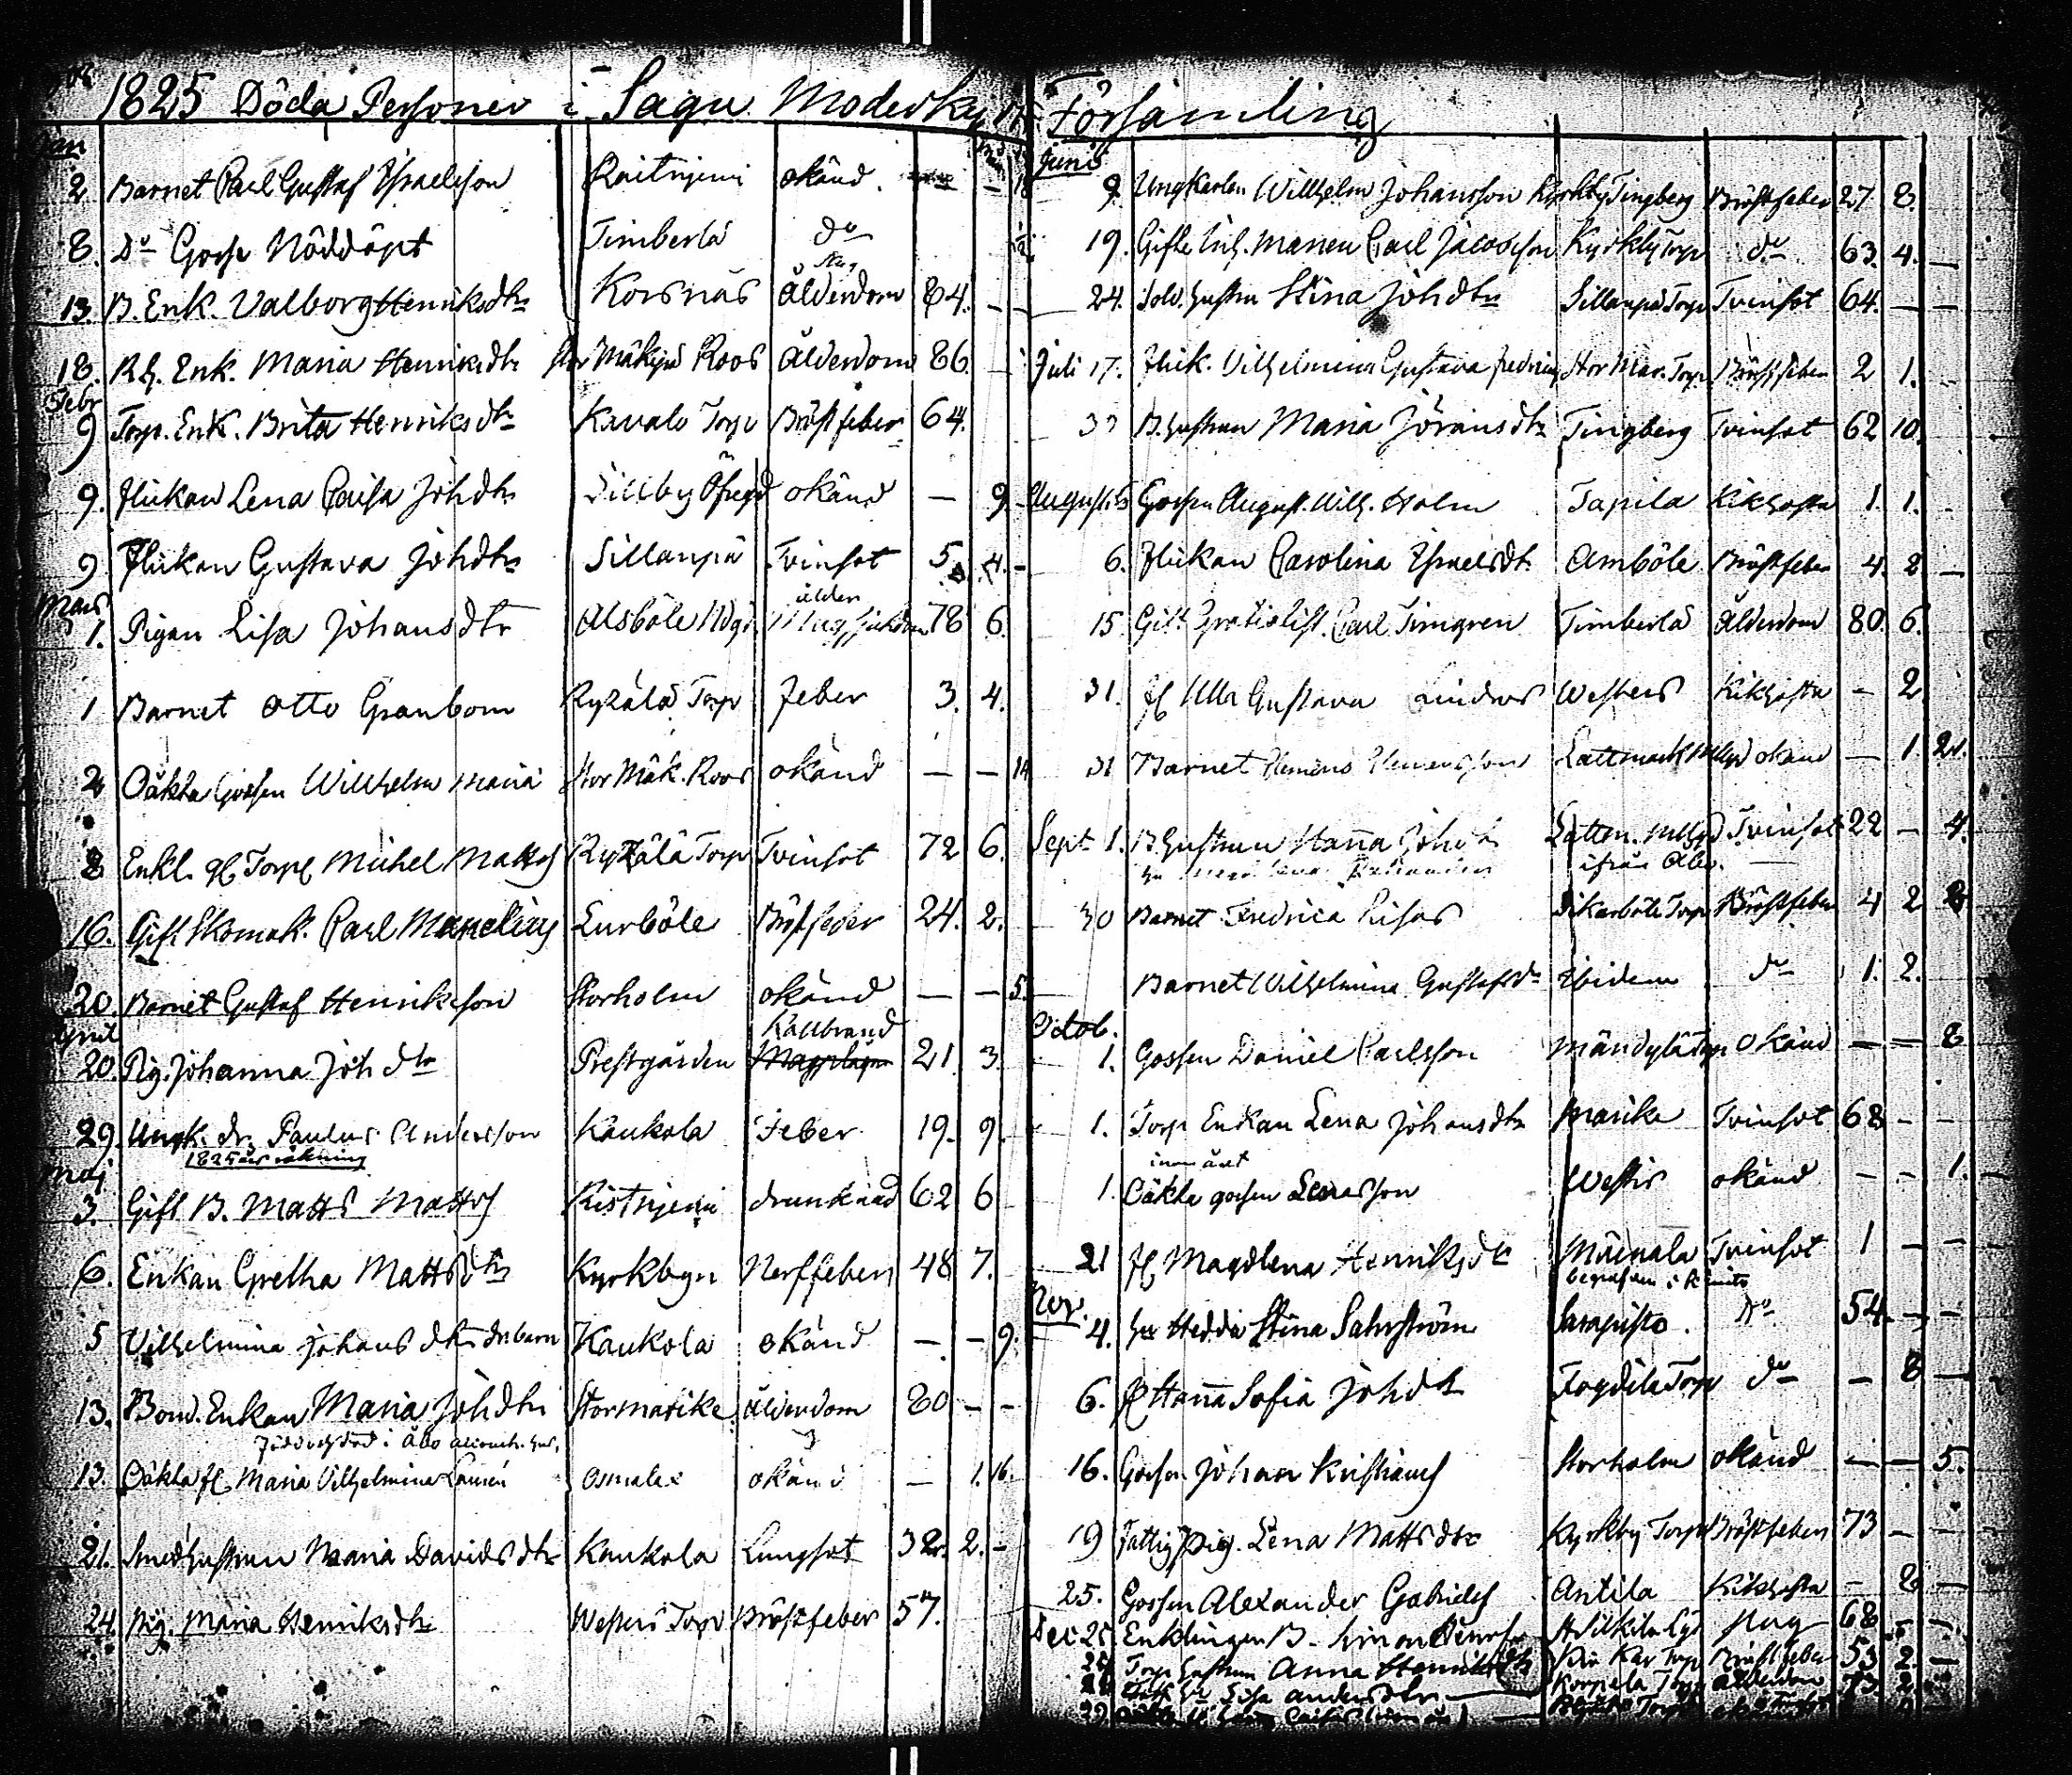 1825 Döda Personer i Sagu Moderky Församling
Jan
2 Barnet Carl Gustaf Israelsson Raitnjemi okänd. — 18
8. Do Gosse Nöddöpt Timberla do
Slag
13. B. Enk. Valborg Henriksdtr Korsnäs Ålderdom 84. — —
18. Rh. Enk. Maria Henriksdtr Stor Mäkyrå Roos Ålderdom 86. —
Febr
9 Torp. Enk. Brita Henriksdtr Kavalo Torp Bröstfeber 64.
9. Flickan Lena Caisa Johdtr Sillby okänd — 9. —
9 Flickan Gustava Johdtr Sillanpä Tvinsot 5 4. —
Mars
ålder
1. Pigan Lisa Johansdtr Alsböle 78 6.
1 Barnet Otto Granbom Ryzälä Torp Feber 3. 4.
2 Oäkta Gossen Willhelm Maria Stor Mäk. Roos okänd — — 14
8 Enkl. gl Torp Michel Matts Ryzälä Torp Tvinsot 72 6.
16. Gift Skomak. Carl Manelius Lurböle Bröstfeber 24. 2.
20. Barnet Gustaf Henriksson Storholm okänd — — 5.
April
Kallbrand
20. Pig. Johanna Joh dtr Prestgården 21. 3.
29. Ungk. dr. Paulus Andersson Kaukola Feber 19. 9.
1825 års räkning
Maj
3. Gift B. Matts Matts Ristnjemi drunknad 62 6
6. Enkan Gretha Mattsdtr Kyrkbyn Nerffeber 48 7.
5 Vilhelmina Johans dtr barn Kaukola okänd — — 9.
13. Bond. Enkan Maria Johdtr Stormarike ålderdom 80 — —
född och död i Åbo
13. Oäkta fl. Maria Vilhelmina Lauren okänd — 1. 16.
21. Smedhustrun Maria Davidsdtr Kaukola Lungsot 32. 2. —
24. Pig. Maria Henriksdtr Westers Torp Bröstfeber 57.
Juni
9. Ungkarlen Willhelm Johansson Kyrkby Tingberg Bröstfeber 27. 8.
19. Gifte Inh. Mannen Carl Jacobsson Kyrkby Torp do 63. 4. —
24. Sold. hustru Stina Johdtr Sillanpä Torp Tvinsot 64. — —
Juli 17. Flick. Vilhelmina Gustava Stor Mar. Torp Bröstfeber 2 1. —
B. hustrun Maria Göransdtr Tingberg Tvinsot 62 10.
Augusti Gossen August Wilh. Holm Tapila Kikhosta 1. 1.
6. Flickan Carolina Israelsdtr Amböle Bröstfeber 4. 8 —
15 Gift Gratialist. Carl Timgren Timberlä Ålderdom 80. 6.
31. fl Ulla Gustava Lindros Westers Kikhosta — 2
31 Barnet Clemens Clemensson Lattmark okänd — 1. 21.
Sept 1. B. hustrun Hanna Johdtr Lattm. Tvinsot 22 — 4.
ifrån Åbo.
30 Barnet Fredrica Lisas Sikarböle Torp Bröstfeber 4 2
Barnet Wilhelmina Gustafsdr Ibidem do 1. 2.
Octob.
1. Gossen Daniel Carlsson Mändylä Torp Okänd — — 8
1. Torp Enkan Lena Johansdtr Marike Tvinsot 68 — —
1. Oäkta gossen Lenasson Westis okänd — — 1.
21 fl Magdlena Henriksdtr Tvinsot 1 — —
begrafven i Rimito
Nov.
4. hu Hedda Stina Sahrström Sarapisto. do 54. — —
6. fl Hanna Sofia Johdtr Fogdila Torp do — 8 —
16. Gossen Johan Kristians Storholm okänd — — 5.
19 Fattig Pig. Lena Mattsdtr Kyrkby Torp Bröstfeber 73 — —
25. Gossen Alexander Gabriels Antila Kikhosta — 8 —
Dec 25. Enklingen B. Simon Slag 68 — —
Torp hustrun Anna Henriksdtr Torp Bröstfeber 53 2 —
Lisa Andersdtr Korpela Torp ålderdom 73. 2
29